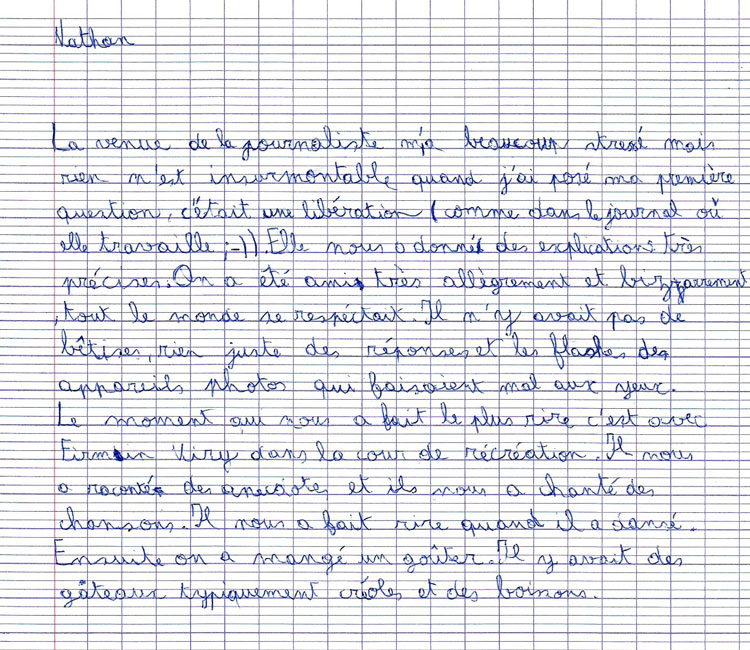 Nathan
La venue de la journaliste m'a beaucoup stressé mais
rien n'est insurmontable quand j'ai posé ma première
question, c'était une libération (comme dans le journal où
elle travaille ;-)). Elle nous a donné des explications très
précises. On a été amis très allègrement et bizzarrement
, tout le monde se respectait. Il n'y avait pas de
bêtises, rien juste des réponses et les flashes des
appareils photos qui faisaient mal aux yeux.
Le moment qui nous a fait le plus rire c'est avec
Firmin Viry dans la cour de récréation. Il nous
a raconté des anecdotes et ils nous a chanté des
chansons. Il nous a fait rire quand il a dansé.
Ensuite on a mangé un goûter. Il y avait des
gâteaux typiquement créoles et des boissons.